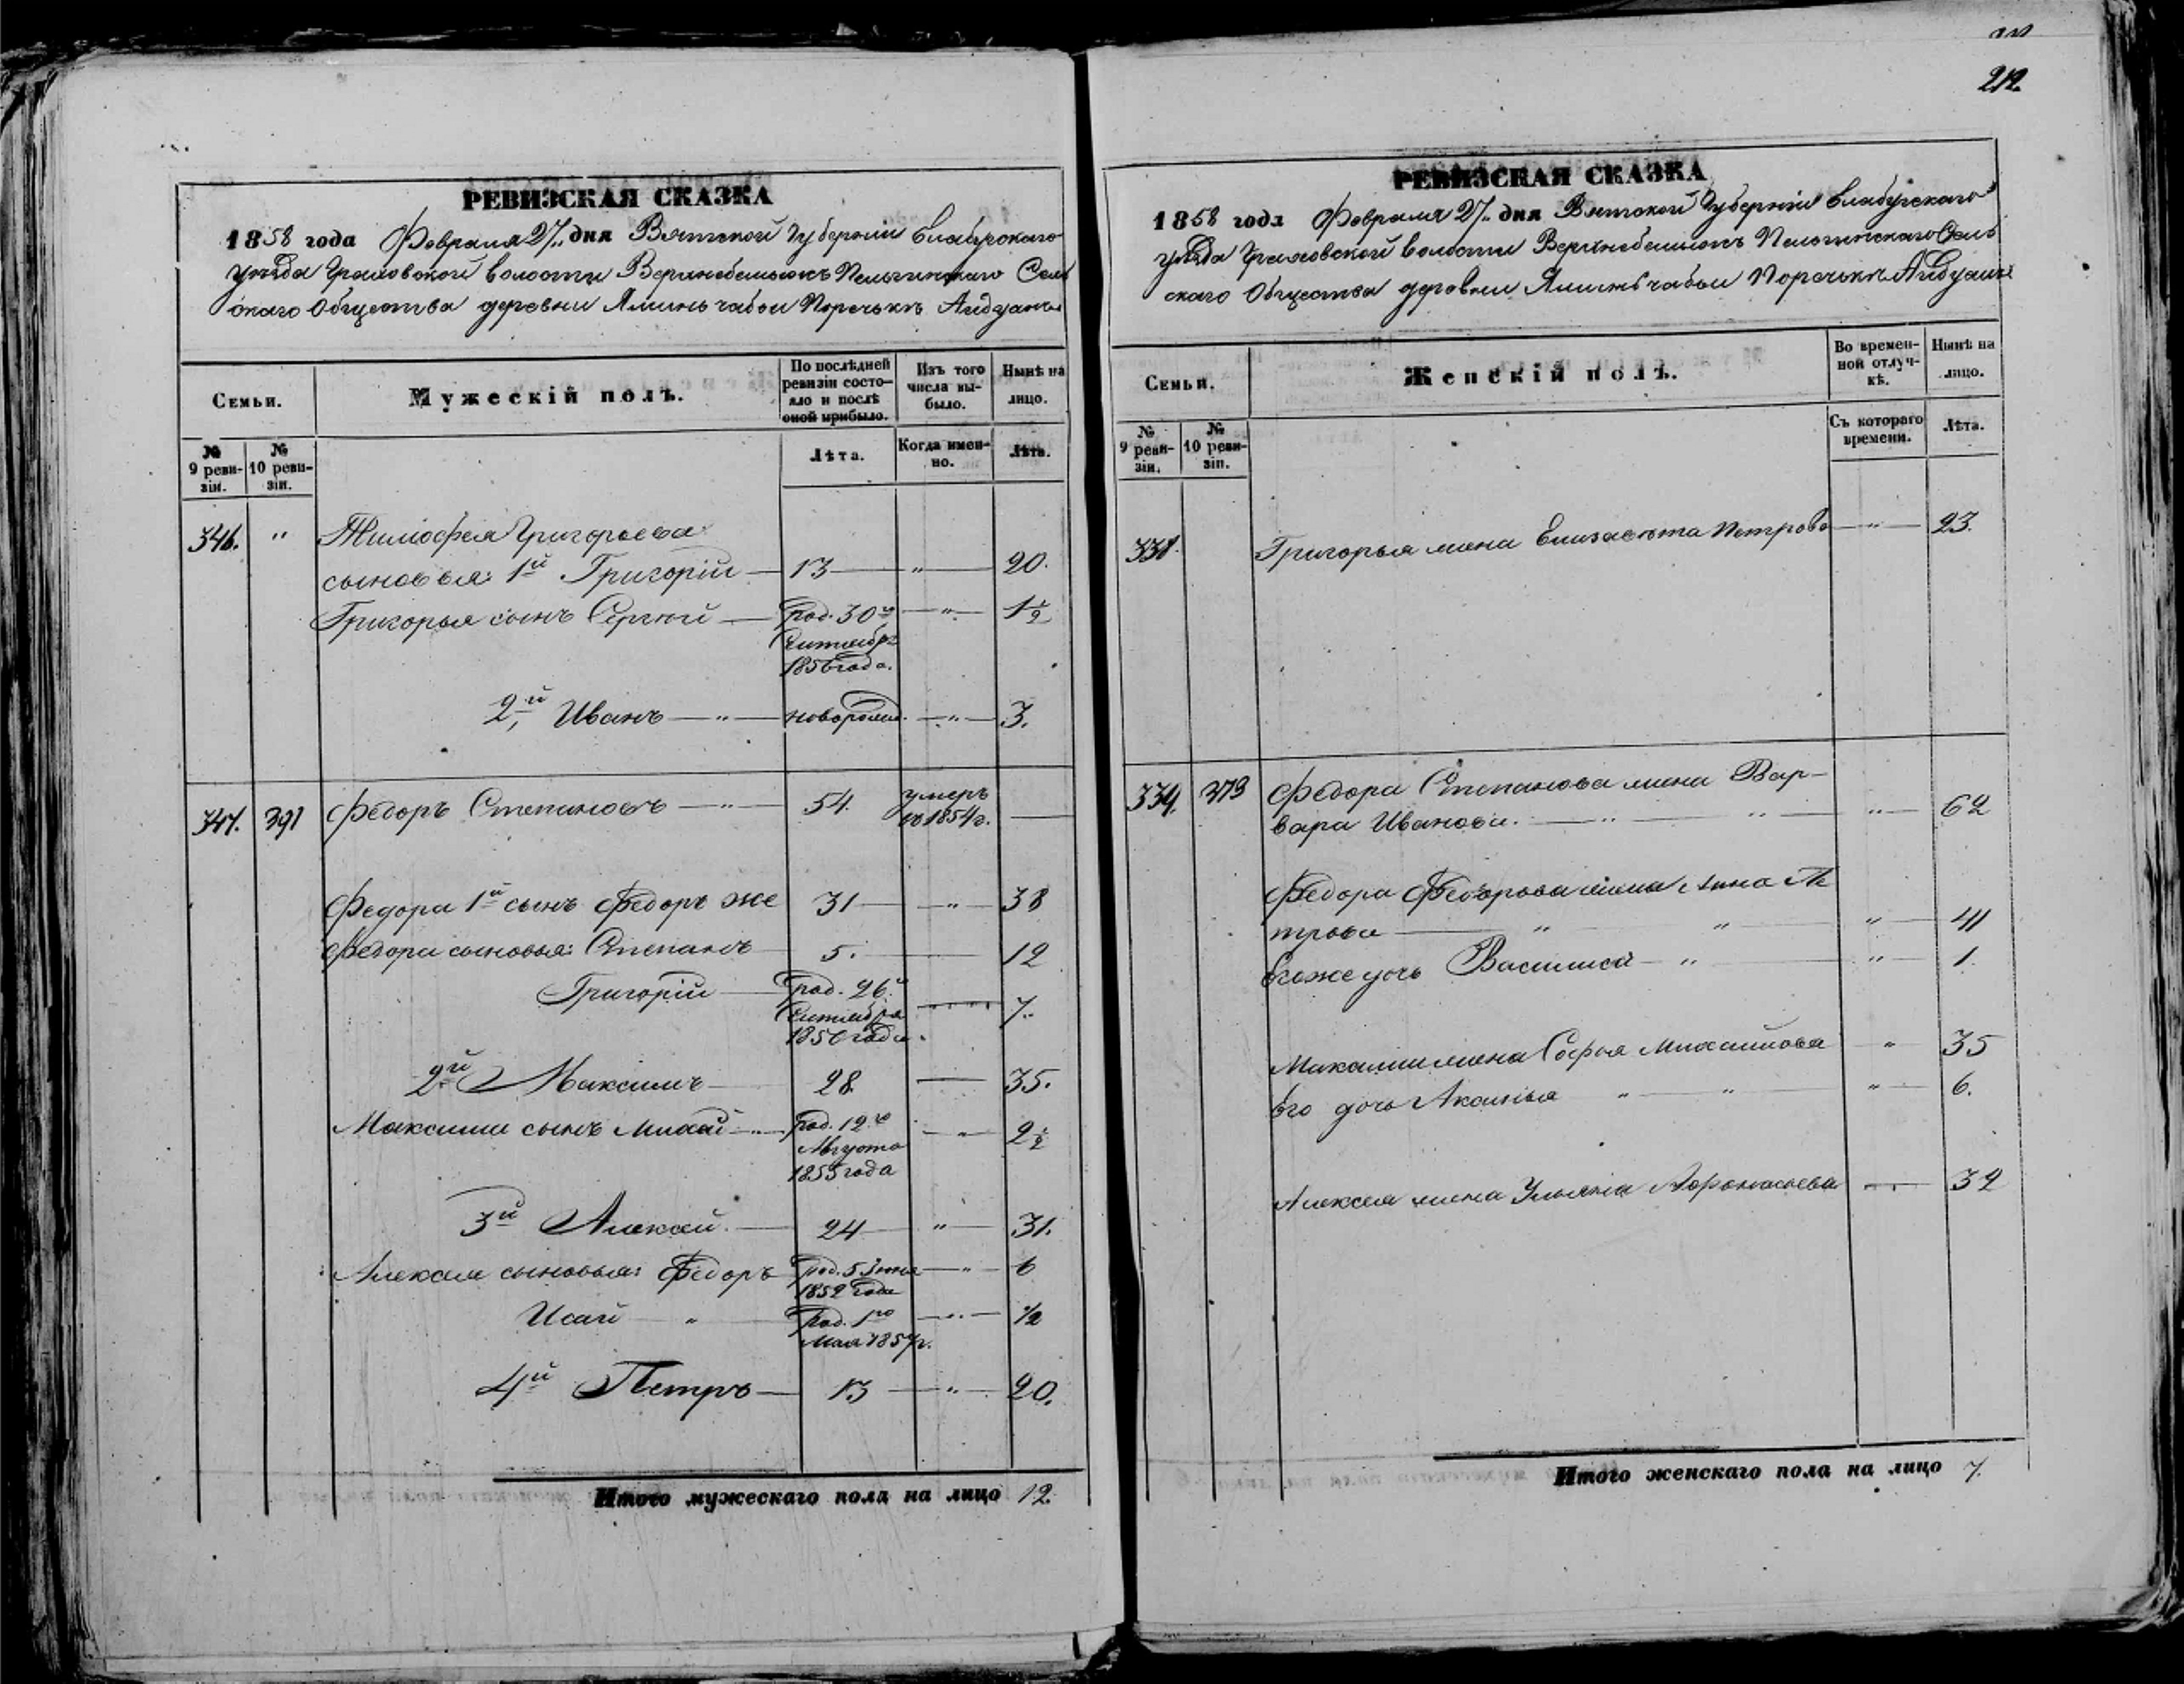 212.
РЕВИЗСКАЯ СКАЗКА
1858 года Февраля 27. дня Вятской Губерніи Елабужскаго
уѣзда Граховской волости Сель
скаго Общества деревни
Семьи.
Мужескій полъ.
По послѣдней ревизіи состояло и послѣ оной прибыло.
Изъ того числа выбыло.
Нынѣ на лицо.
№ 9 ревизіи.
№ 10 ревизіи.
Лѣта.
Когда именно.
Лѣта.
346. "
Тимофея Григорьева
сыновья: 1й Григорій — 13 — " — 20.
Григорья сынъ Сергѣй — род. 30го — " — 1½
Сентября
1856 года.
2й Иванъ — " — новорожд. — " — 3.
347. 391 Федоръ Степановъ — " — 54. умеръ
въ 1854 г. —
Федора 1й сынъ Федоръ же 31 — " — 38
Федора сыновья: Степанъ 5. — 12
Григорій — род. 26. 7.
Сентября
года.
2й Максимъ 28 — 35.
Максима сынъ — " — род. 12го — " — 2½
Августа
1855 года
3й Алексѣй. — 24 " — 31.
Алексея сыновья: Федоръ род. 5 — " — 6
1852 года
Исай — " — род. 1го — " — ½
Мая 1857 г.
4й Петръ — 13 — " — 20.
Итого мужескаго пола на лицо 12.
РЕВИЗСКАЯ СКАЗКА
1858 года Февраля 27. дня Вятской Губерніи Елабужскаго
уѣзда Граховской волости Сель
скаго Общества деревни
Семьи.
Женскій полъ.
Во временной отлучкѣ.
Нынѣ на лицо.
№ 9 ревизіи.
№ 10 ревизіи.
Съ котораго времени.
Лѣта.
338. Григорья жена Елизавета Петрова — " — 23.
339. 373 Федора Степанова жена Вар-
вара Иванова. — " — " — " — 62
Федора Федорова жена Анна Пе
трова — " " " — 41
Его же дочь Василиса — " — " — 1.
Максима жена Софья Михайлова " 35
Его дочь Аксинья " — " " — 6.
Алексея жена Ульяна Афонасьева — " — 32
Итого женскаго пола на лицо 7.